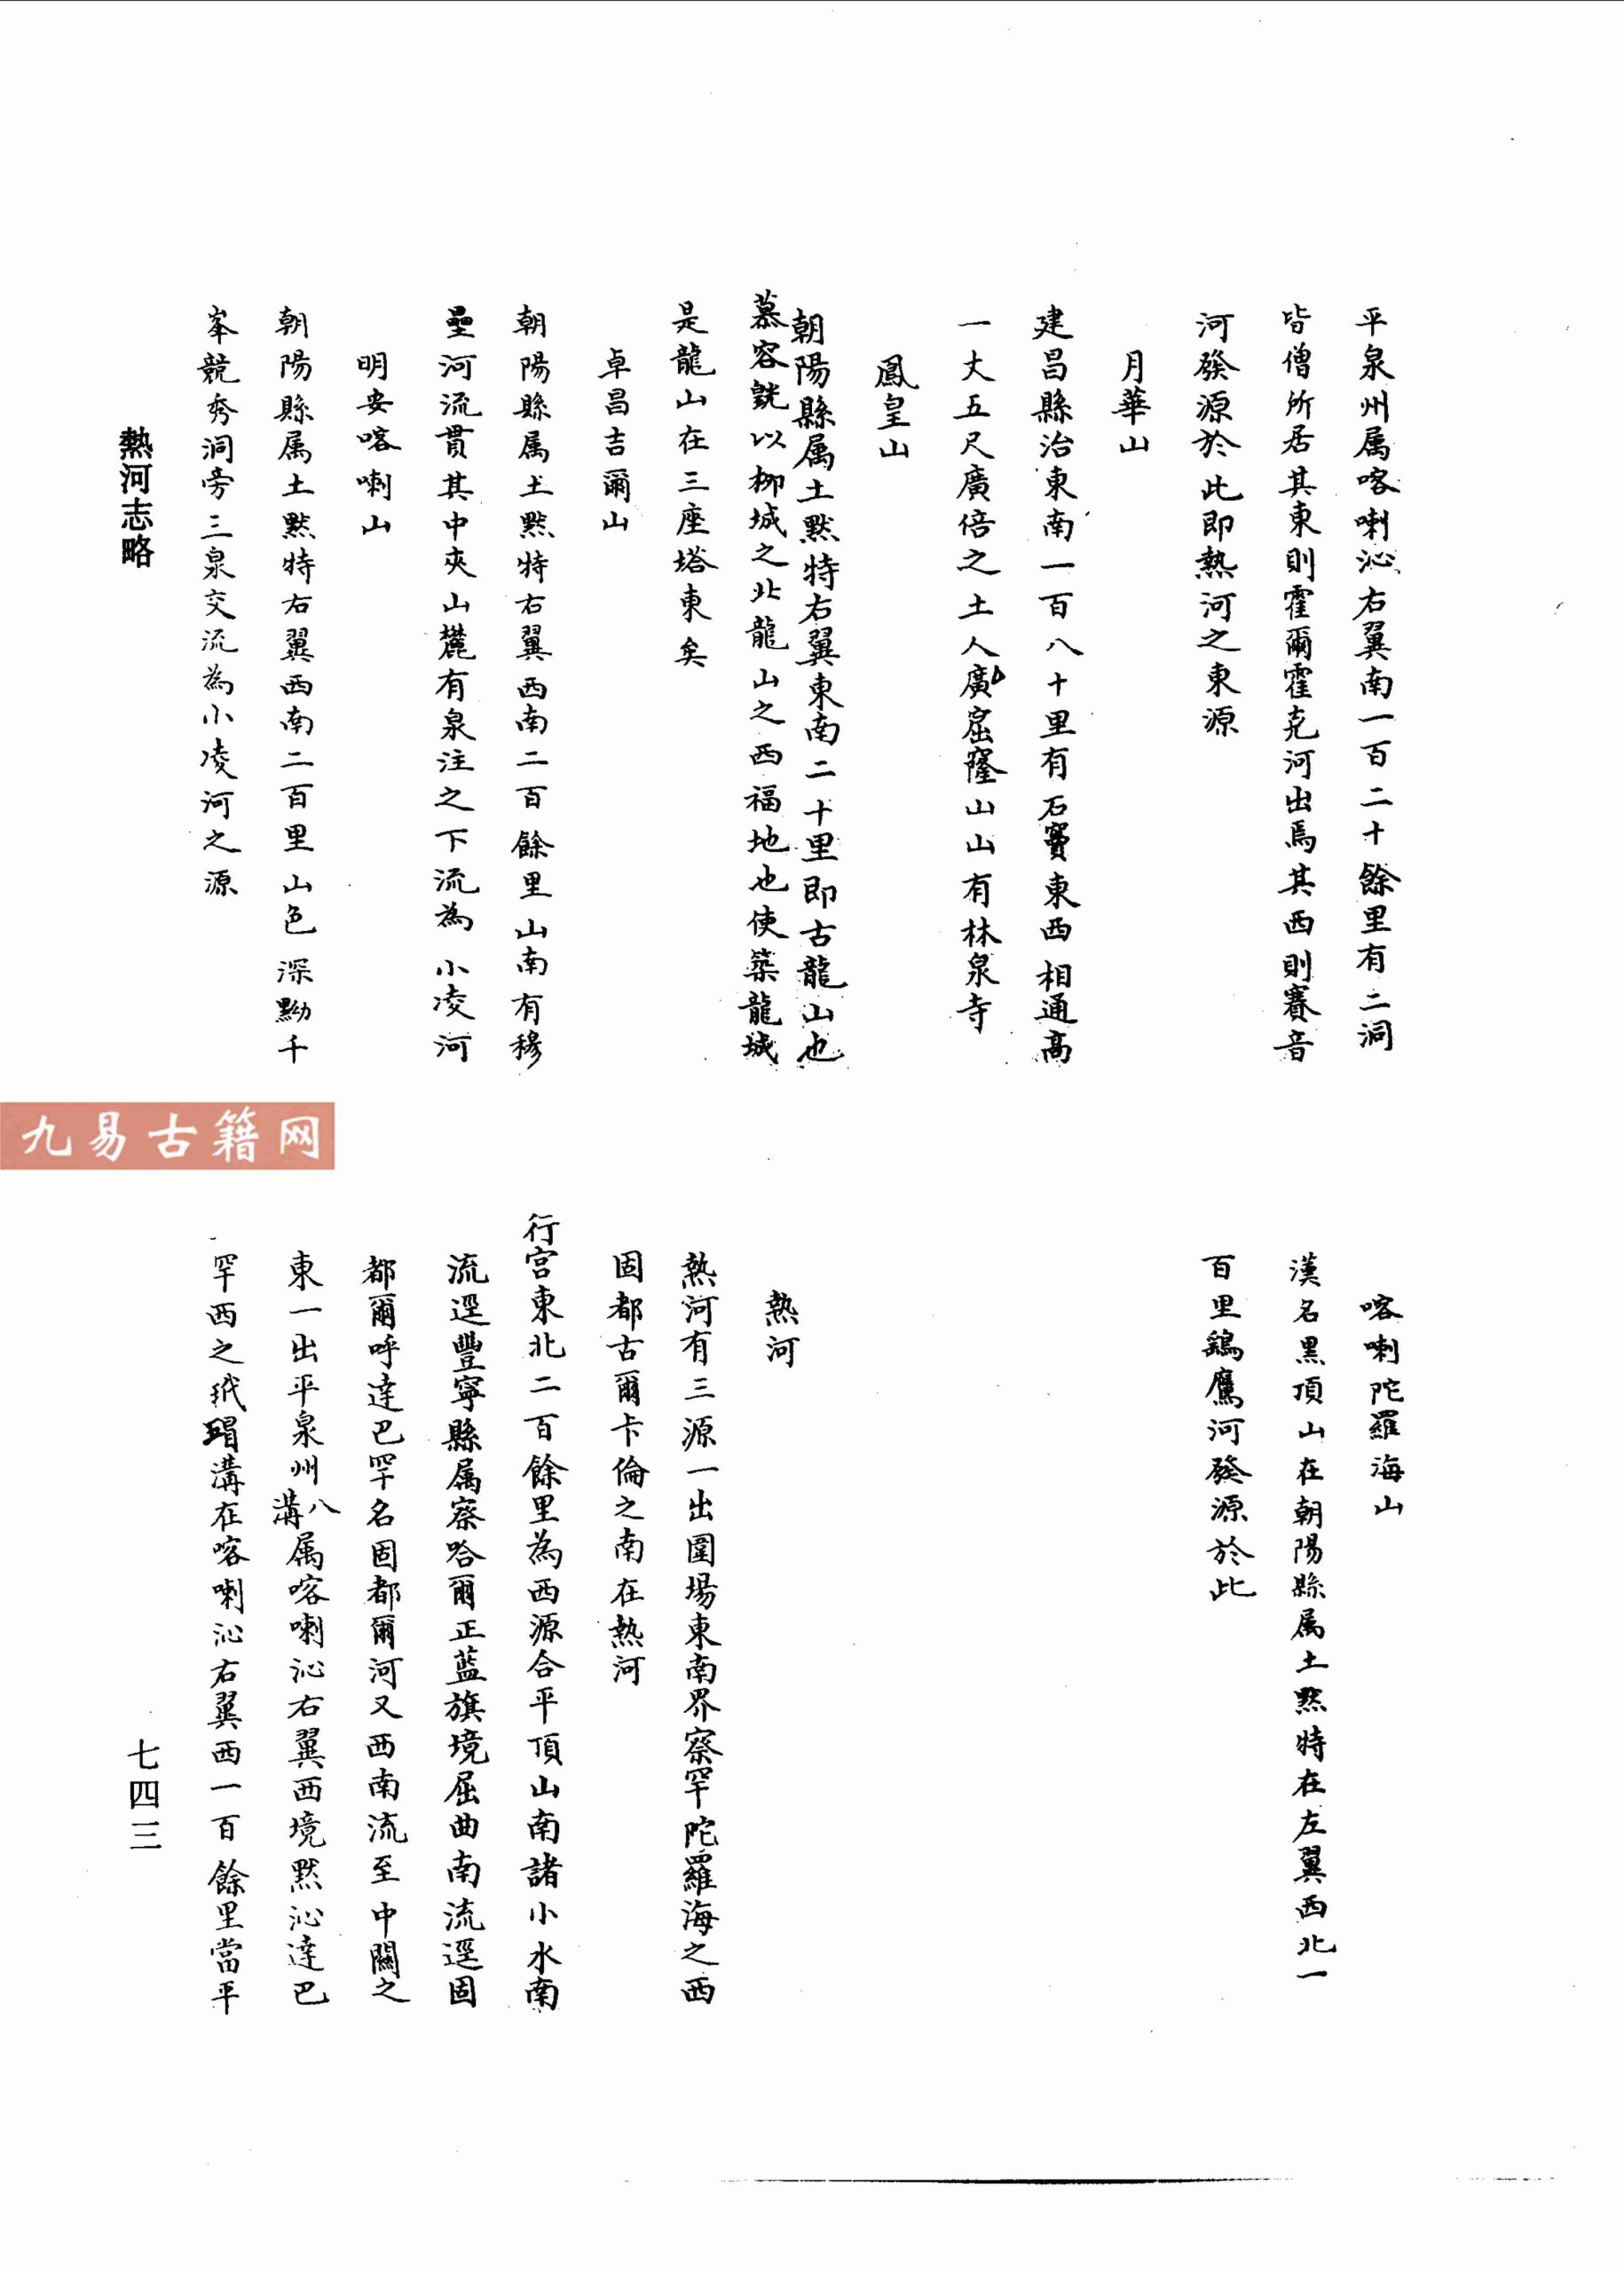 平泉州属喀喇沁右翼南一百二十餘里有二洞
皆僧所居其東則霍爾霍克河出焉其西則賽音
河發源於此即熱河之東源
月華山
建昌縣治東南一百八十里有石竇東西相通高
一丈五尺廣倍之土人廣窟窿山山有林泉寺
鳳皇山
朝陽縣属土默特右翼東南二十里即古龍山也
慕容皝以柳城之北龍山之西福地也使築龍城
是龍山在三座塔東矣
卓昌吉爾山
朝陽縣属土默特右翼西南二百餘里山南有穆
壘河流貫其中夾山麓有泉注之下流為小凌河
明安喀喇山
朝陽縣属土默特右翼西南二百里山色深黝千
峯競秀洞旁三泉交流為小凌河之源
熱河志略
九易古籍网
喀喇陀羅海山
漢名黑頂山在朝陽縣属土默特在左翼西北一
百里鷂鷹河發源於此
熱河
熱河有三源一出圍場東南界察罕陀羅海之西
固都古爾卡倫之南在熱河
行宮東北二百餘里為西源合平頂山南諸小水南
流逕豐寧縣属察哈爾正藍旗境屈曲南流逕固
都爾呼達巴罕名固都爾河又西南流至中關之
東一出平泉州八溝属喀喇沁右翼西境默沁達巴
罕西之玳瑁溝在喀喇沁右翼西一百餘里當平
七四三